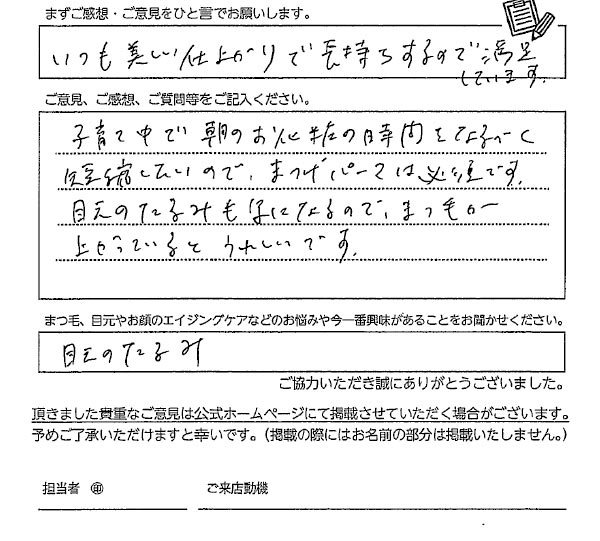 まずご感想・ご意見をひと言でお願いします。
いつも美しい仕上がりで長持ちするので満足
しています。
ご意見、ご感想、ご質問等をご記入ください。
子育て中で朝のお化粧の時間をなるべく
短縮したいので、まつげパーマは必須です。
目元のたるみも気になるので、まつ毛が
上がっているとうれしいです。
まつ毛、目元やお顔のエイジングケアなどのお悩みや今一番興味があることをお聞かせください。
目元のたるみ
ご協力いただき誠にありがとうございました。
頂きました貴重なご意見は公式ホームページにて掲載させていただく場合がございます。
予めご了承いただけますと幸いです。（掲載の際にはお名前の部分は掲載いたしません。）
担当者 ㊞ ご来店動機